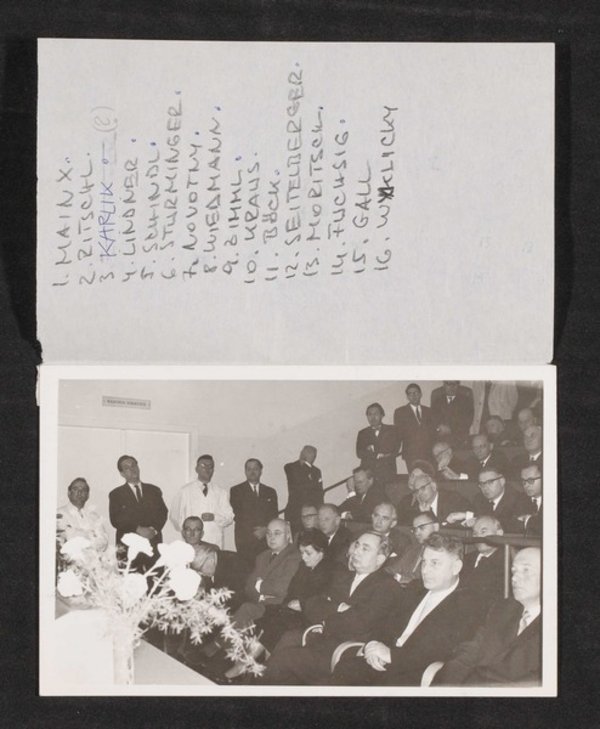 1. MAINX.
2. RITSCHL.
3. KARLIK (?)
4. LINDNER.
5. SCHINDL.
6. STURMINGER.
7. NOVOTNY.
8. WIEDMANN.
9. ZIMML.
10. KRAUS.
11. BÖCK.
12. SEITELBERGER.
13. MORITSCH.
14. FUCHSIG.
15. GALL
16. WYKLICKY